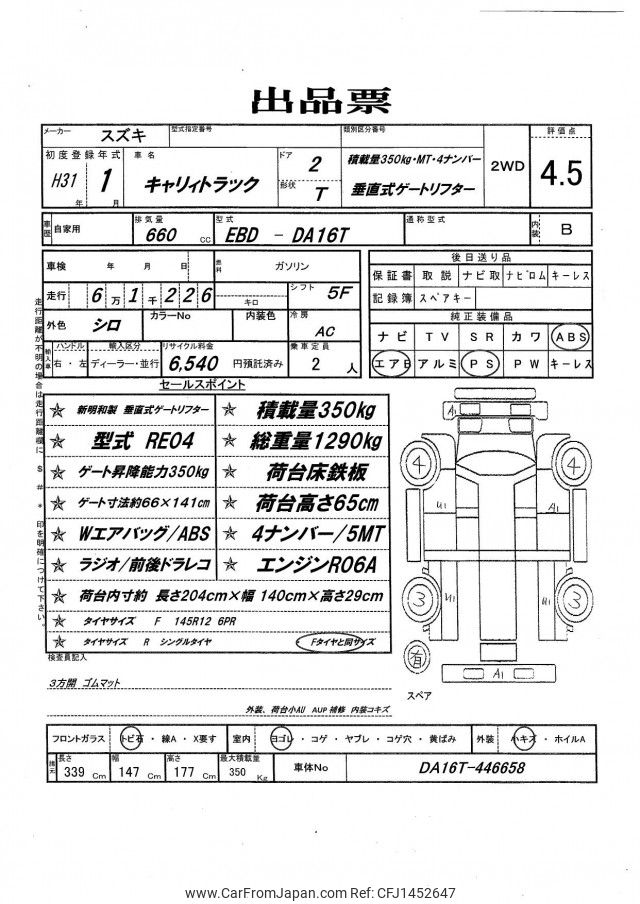 出品票
メーカー スズキ 型式指定番号 類別区分番号 評価点
初度登録年式 H31 年 1 月 車名 キャリィトラック ドア 2 形状 T 積載量350kg・MT・4ナンバー 垂直式ゲートリフター 2WD 4.5
車歴 自家用 排気量 660 cc 型式 EBD - DA16T 通称型式 内装 B
車検 年 月 日 燃料 ガソリン
走行 6 万 1 千 2 2 6 キロ シフト 5F
外色 シロ カラーNo 内装色 冷房 AC
輸入車 ハンドル 右・左 輸入区分 ディーラー・並行 リサイクル料金 6,540 円預託済み 乗車定員 2 人
後日送り品
保証書 取説 ナビ取 ナビロム キーレス
記録簿 スペアキー
純正装備品
ナビ TV SR カワ ABS
エアB アルミ PS PW キーレス
走行距離が不明の場合は走行距離欄に $ # * 印を明確につけて下さい。
セールスポイント
☆ 新明和製 垂直式ゲートリフター ☆ 積載量350kg
☆ 型式 RE04 ☆ 総重量1290kg
☆ ゲート昇降能力350kg ☆ 荷台床鉄板
☆ ゲート寸法約66×141cm ☆ 荷台高さ65cm
☆ Wエアバッグ/ABS ☆ 4ナンバー/5MT
☆ ラジオ/前後ドラレコ ☆ エンジンR06A
☆ 荷台内寸約 長さ204cm×幅 140cm×高さ29cm
☆ タイヤサイズ F 145R12 6PR
☆ タイヤサイズ R シングルタイヤ Fタイヤと同サイズ
A1
4 4
U1 A1
3 3
U1 U1
有 A1
スペア
検査員記入
3方開 ゴムマット
外装、荷台小AU AUP補修 内装コキズ
フロントガラス トビ石・線A・X要す 室内 ヨゴレ・コゲ・ヤブレ・コゲ穴・黄ばみ 外装 小キズ・ホイルA
諸元 長さ 339 Cm 幅 147 Cm 高さ 177 Cm 最大積載量 350 Kg 車体No DA16T-446658
www.CarFromJapan.com Ref: CFJ1452647